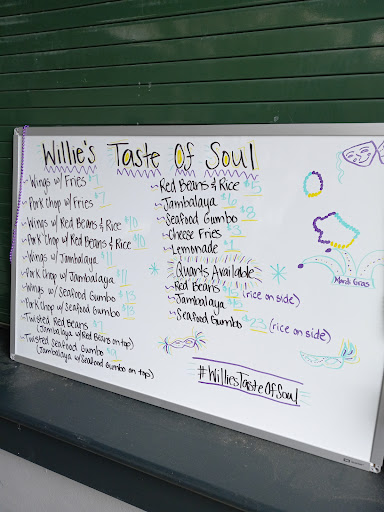 Willie's Taste Of Soul
~Wings w/ Fries $7
~Pork Chop w/ Fries $7
~Wings w/ Red Beans & Rice $10
~Pork Chop w/ Red Beans & Rice $10
~Wings w/ Jambalaya $11
~Pork Chop w/ Jambalaya $11
~Wings w/ Seafood Gumbo $13
~Pork Chop w/ Seafood Gumbo $13
~Twisted Red Beans $7
(Jambalaya w/ Red Beans on top)
~Twisted Seafood Gumbo $9
(Jambalaya w/ Seafood Gumbo on top)
~Red Beans & Rice $5
~Jambalaya $6
~Seafood Gumbo $8
~Cheese Fries $3
~Lemonade $1
Quarts Available
~Red Beans (rice on side)
~Jambalaya
~Seafood Gumbo $23 (rice on side)
#WilliesTasteOfSoul
Mardi Gras